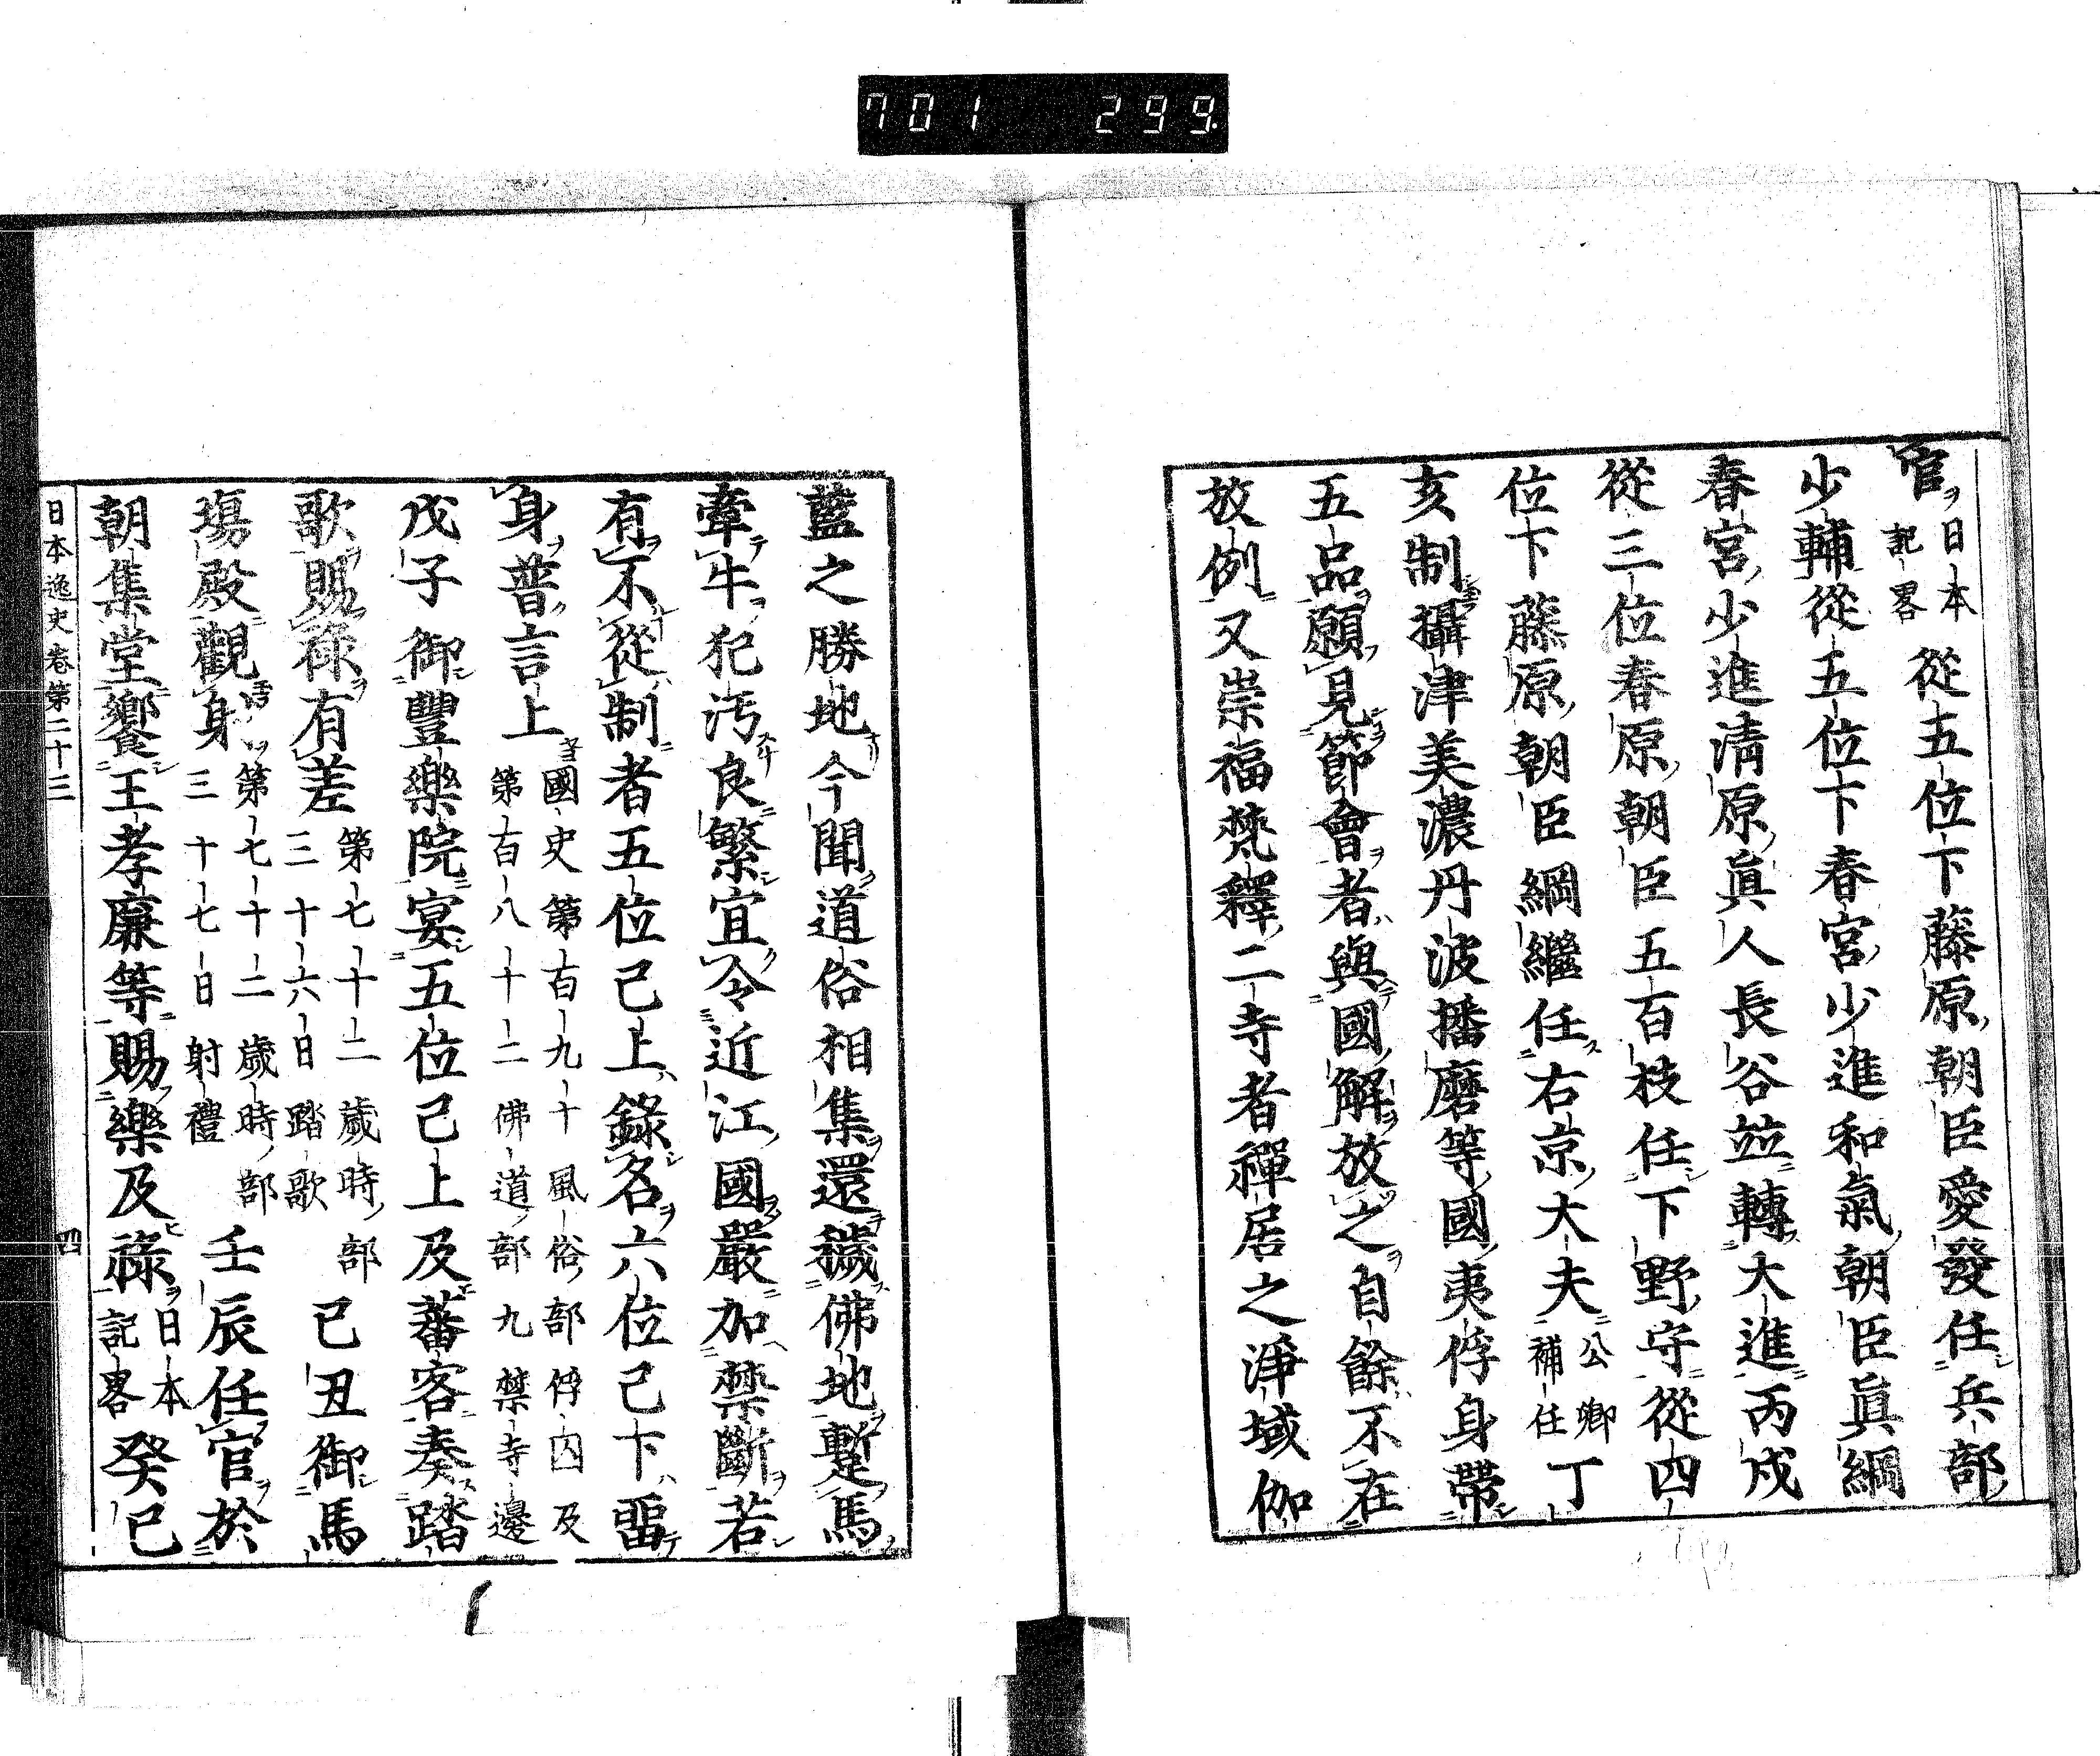 701 299
官日本記畧從五位下藤原朝臣愛發任兵部
少輔從五位下春宮少進和氣朝臣眞綱
春宮少進清原眞人長谷竝轉大進丙戍
從三位春原朝臣五百枝任下野守從四
位下藤原朝臣綱繼任右京大夫公卿補任丁
亥制攝津美濃丹波播磨等國夷俘身帶
五品願見節會者與國解放之自餘不在
放例又崇福梵釋二寺者禪居之淨域伽
藍之勝地今聞道俗相集還穢佛地蹔馬
牽牛犯汚良繁宜令近江國嚴加禁斷若
有不從制者五位已上錄名六位已下畱
身普言上國史第百九十風俗部俘囚及第百八十二佛道部九禁寺邊
戊子御豐樂院宴五位已上及蕃客奏踏
歌賜祿有差第七十二歲時部三十六日踏歌己丑御馬
塲殿觀射第七十二歲時部三十七日射禮壬辰任官於
朝集堂饗王孝廉等賜樂及祿日本記畧癸巳
日本逸史卷第二十三 四